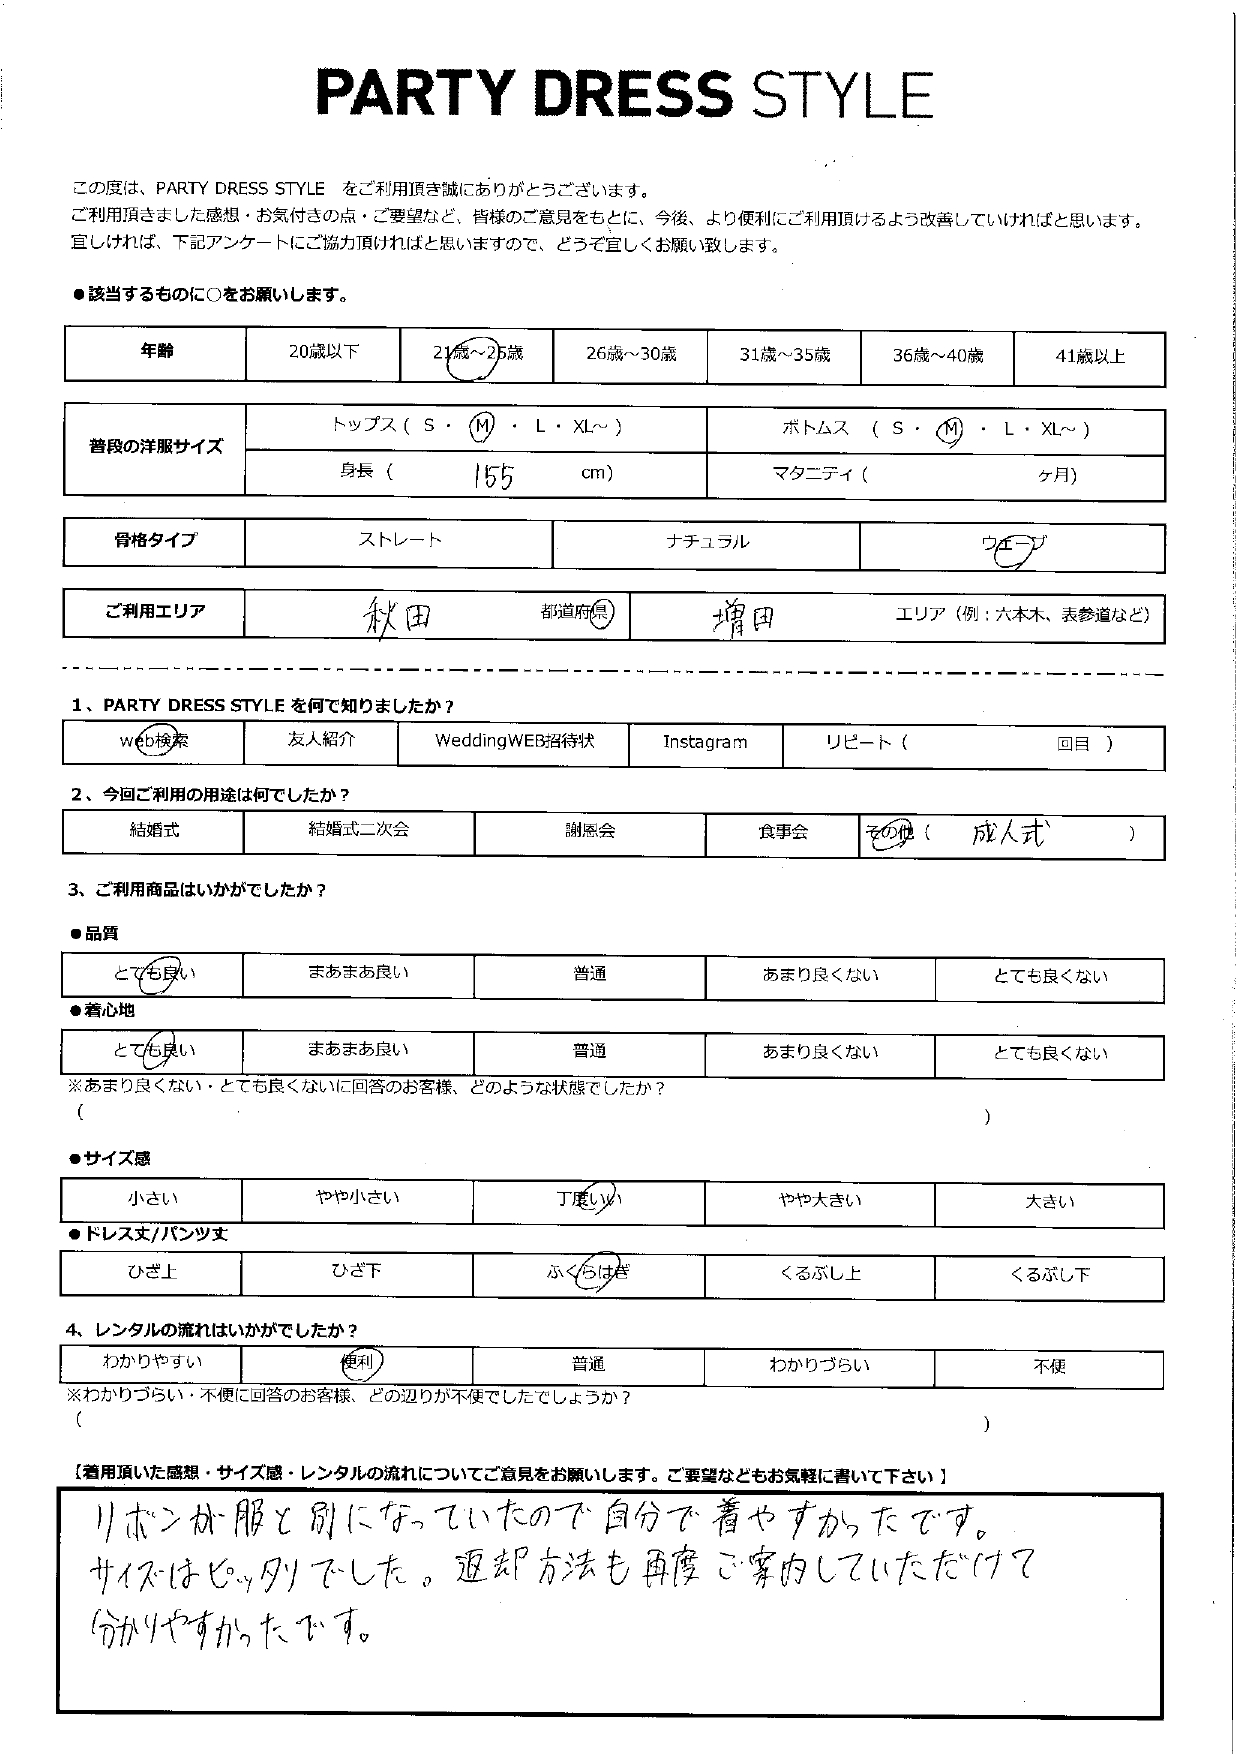 PARTY DRESS STYLE
この度は、PARTY DRESS STYLE をご利用頂き誠にありがとうございます。
ご利用頂きました感想・お気付きの点・ご要望など、皆様のご意見をもとに、今後、より便利にご利用頂けるよう改善していければと思います。
宜しければ、下記アンケートにご協力頂ければと思いますので、どうぞ宜しくお願い致します。
●該当するものに○をお願いします。
年齢 20歳以下 21歳～25歳 26歳～30歳 31歳～35歳 36歳～40歳 41歳以上
普段の洋服サイズ トップス ( S ・ M ・ L ・ XL～ ) ボトムス ( S ・ M ・ L ・ XL～ )
身長 ( 155 cm) マタニティ ( ヶ月)
骨格タイプ ストレート ナチュラル ウェーブ
ご利用エリア 秋田 都道府県 増田 エリア（例：六本木、表参道など）
1、PARTY DRESS STYLE を何で知りましたか？
web検索 友人紹介 WeddingWEB招待状 Instagram リピート ( 回目 )
2、今回ご利用の用途は何でしたか？
結婚式 結婚式二次会 謝恩会 食事会 その他 ( 成人式 )
3、ご利用商品はいかがでしたか？
●品質
とても良い まあまあ良い 普通 あまり良くない とても良くない
●着心地
とても良い まあまあ良い 普通 あまり良くない とても良くない
※あまり良くない・とても良くないに回答のお客様、どのような状態でしたか？
( )
●サイズ感
小さい やや小さい 丁度いい やや大きい 大きい
●ドレス丈/パンツ丈
ひざ上 ひざ下 ふくらはぎ くるぶし上 くるぶし下
4、レンタルの流れはいかがでしたか？
わかりやすい 便利 普通 わかりづらい 不便
※わかりづらい・不便に回答のお客様、どの辺りが不便でしたでしょうか？
( )
【着用頂いた感想・サイズ感・レンタルの流れについてご意見をお願いします。ご要望などもお気軽に書いて下さい 】
リボンが服と別になっていたので自分で着やすかったです。
サイズはピッタリでした。返却方法も再度ご案内していただけて
分かりやすかったです。